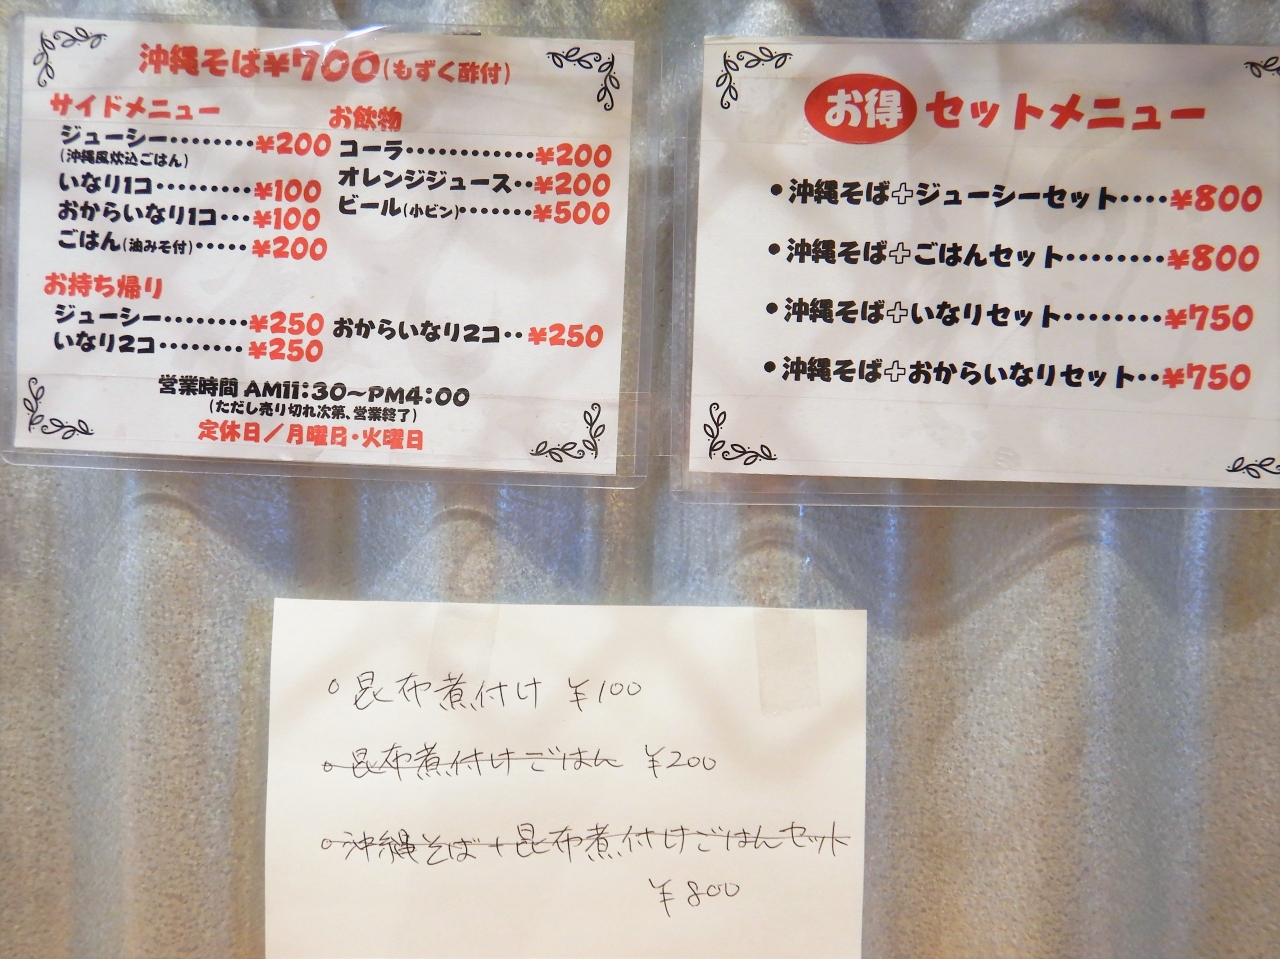 沖縄そば¥700(もずく酢付)
サイドメニュー
ジューシー………¥200
(沖縄風炊込ごはん)
いなり1コ………¥100
おからいなり1コ…¥100
ごはん(油みそ付)……¥200
お飲物
コーラ…………¥200
オレンジジュース‥¥200
ビール(小ビン)……¥500
お持ち帰り
ジューシー………¥250
いなり2コ………¥250
おからいなり2コ‥¥250
営業時間 AM11:30～PM4:00
(ただし売り切れ次第、営業終了)
定休日／月曜日・火曜日
お得 セットメニュー
•沖縄そば+ジューシーセット‥‥¥800
•沖縄そば+ごはんセット………¥800
•沖縄そば+いなりセット………¥750
•沖縄そば+おからいなりセット‥¥750
○昆布煮付け ¥100
○昆布煮付けごはん ¥200
○沖縄そば+昆布煮付けごはんセット
¥800